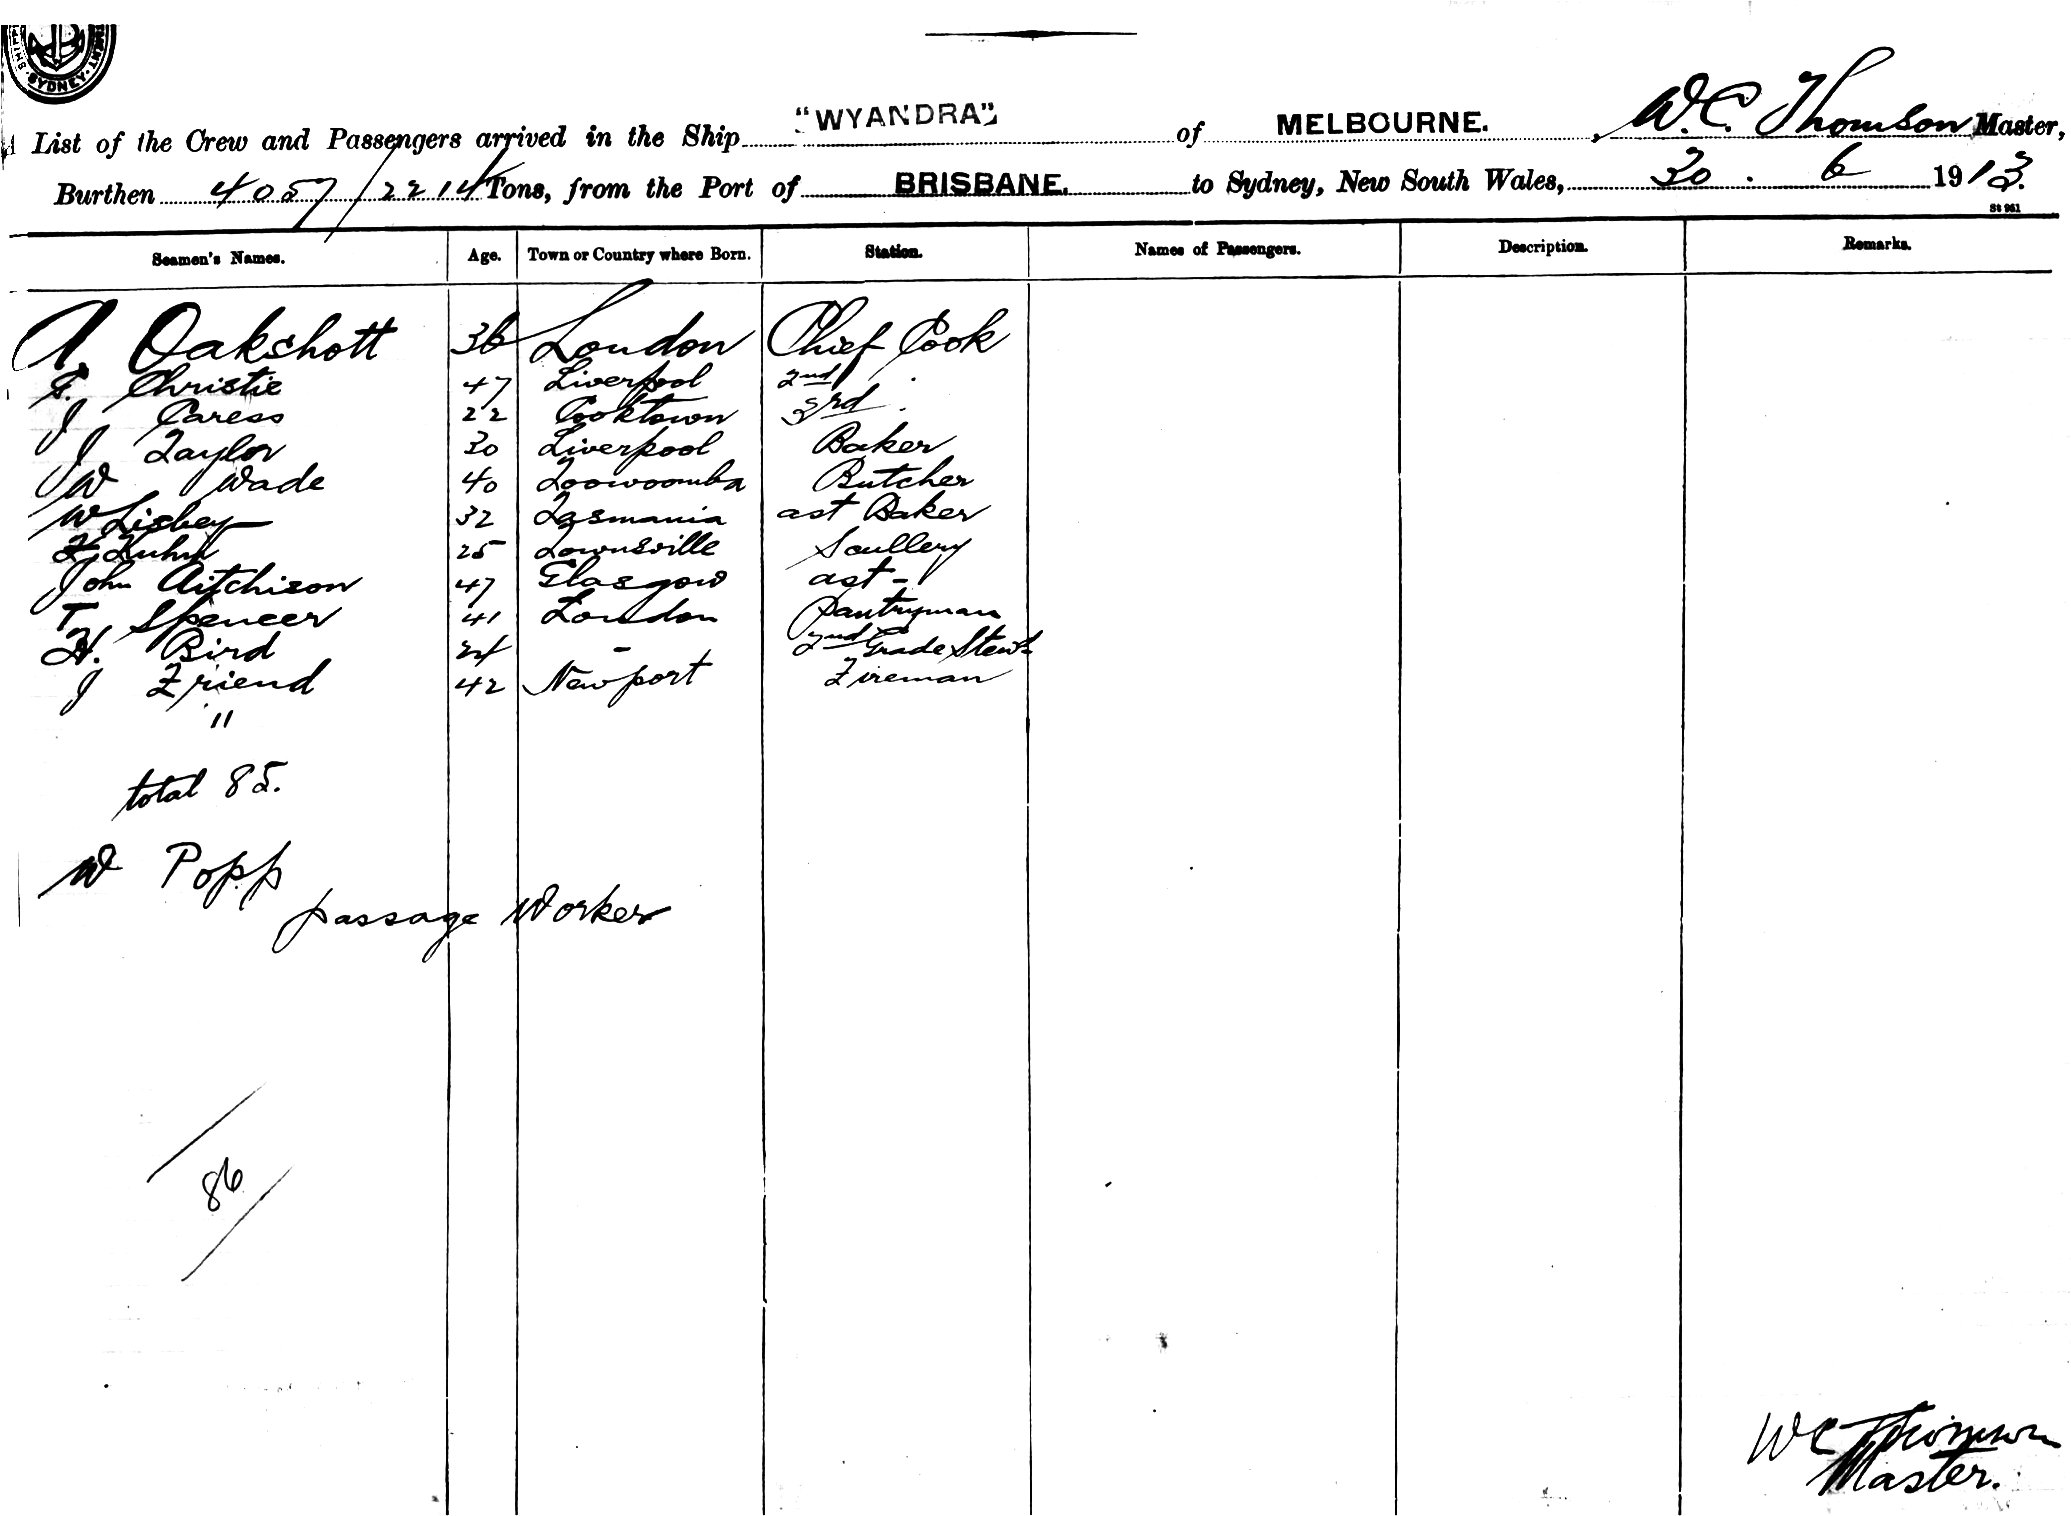 SYDNEY
"WYANDRA"
List of the Crew and Passengers arrived in the Ship "WYANDRA" of MELBOURNE. , W.C. Thomson Master,
Burthen 4057/2214 Tons, from the Port of BRISBANE. to Sydney, New South Wales, 30 . 6 1913.
St 961
Seamen's Names. Age. Town or Country where Born. Station. Names of Passengers. Description. Remarks.
A. Oakshott 36 London Chief Cook
Christie 47 Liverpool 2nd "
J Caress 22 Cooktown 3rd "
J Taylor 30 Liverpool Baker
W Wade 40 Toowoomba Butcher
W Lisbey 32 Tasmania ast Baker
25 Townsville Scullery
John Aitchison 47 Glasgow ast -
T. Spencer 41 London Pantryman
H. Bird 24 - 2nd Grade Stewd
J Friend 42 Newport Fireman
11
total 85.
W Popp
passage Worker
86
W C Thomson
Master.